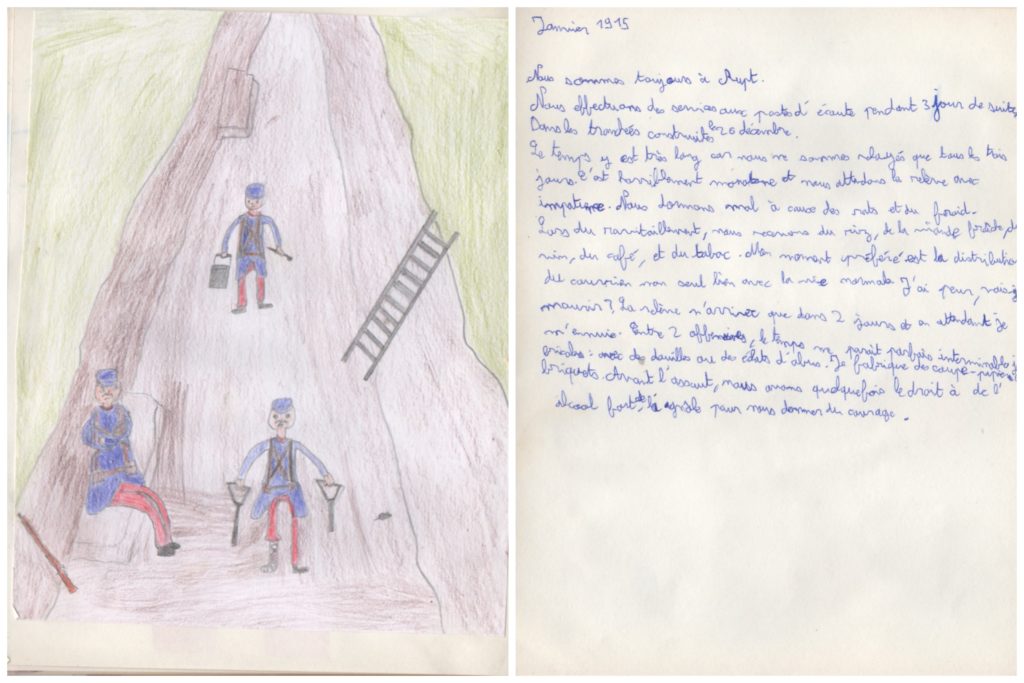 Janvier 1915
Nous sommes toujours à Rupt.
Nous effectuons des services aux postes d'écoute pendant 3 jour de suite,
Dans les tranchées construites les 20 décembre.
Le temps y est très long car nous ne sommes relayés que tous les trois
jours. C'est horriblement monotone et nous attendons la relève avec
impatience. Nous dormons mal à cause des rats et du froid.
Lors du ravitaillement, nous recevons du riz, de la viande froide, du
vin, du café, et du tabac. Mon moment préféré est la distribution
du courrier mon seul lien avec la vie normale J'ai peur, vais je
mourir? La relève n'arrive que dans 2 jours et en attendant je
m'ennuie. Entre 2 offensives, le temps me parait parfois interminable, je
bricole: avec des douilles ou des éclats d'obus. Je fabrique des coupe-papiers
briquets. Avant l'assaut, nous avons quelquefois le droit à de l'
alcool fort, de la pour nous donner du courage.